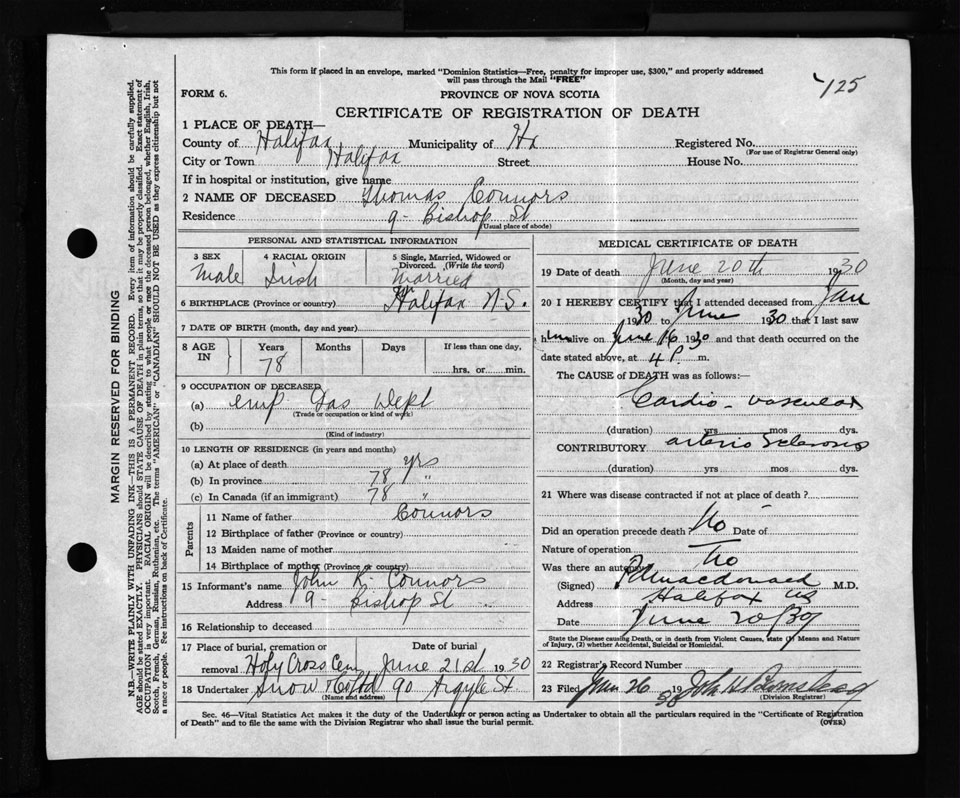 This form if placed in an envelope, marked "Dominion Statistics—Free, penalty for improper use, $300," and properly addressed
will pass through the Mail "FREE"
125
FORM 6.
PROVINCE OF NOVA SCOTIA
CERTIFICATE OF REGISTRATION OF DEATH
1 PLACE OF DEATH—
County of Halifax Municipality of Hx Registered No.
(For use of Registrar General only)
City or Town Halifax Street House No.
If in hospital or institution, give name
2 NAME OF DECEASED Thomas Connors
Residence 9- Bishop St
(Usual place of abode)
PERSONAL AND STATISTICAL INFORMATION
3 SEX 4 RACIAL ORIGIN 5 Single, Married, Widowed or
Divorced. (Write the word)
Male Irish Married
6 BIRTHPLACE (Province or country) Halifax N.S.
7 DATE OF BIRTH (month, day and year)
8 AGE IN Years Months Days If less than one day,
78 hrs. or min.
9 OCCUPATION OF DECEASED
(a) emp Gas Dept
(Trade or occupation or kind of work)
(b)
(Kind of industry)
10 LENGTH OF RESIDENCE (in years and months)
(a) At place of death yrs
(b) In province 78 "
(c) In Canada (if an immigrant) 78 "
Parents
11 Name of father Connors
12 Birthplace of father (Province or country)
13 Maiden name of mother
14 Birthplace of mother (Province or country)
15 Informant's name John R. Connors
Address 9- Bishop St
16 Relationship to deceased
17 Place of burial, cremation or Date of burial
removal Holy Cross Cem June 21st 1930
18 Undertaker Snow Co Ltd 90 Argyle St
(Name and address)
MEDICAL CERTIFICATE OF DEATH
19 Date of death June 20th 1930
(Month, day and year)
20 I HEREBY CERTIFY that I attended deceased from Jan
1930 to June 1930 that I last saw
him alive on June 16 1930 and that death occurred on the
date stated above, at 4 P. m.
The CAUSE of DEATH was as follows:—
Cardio - vascular
(duration) yrs mos dys.
CONTRIBUTORY arterio Sclerosis
(duration) yrs mos dys.
21 Where was disease contracted if not at place of death?
Did an operation precede death? No Date of
Nature of operation
Was there an autopsy No
(Signed) Macdonald M.D.
Address Halifax NS
Date June 20/30
State the Disease causing Death, or in death from Violent Causes, state (1) Means and Nature
of Injury, (2) whether Accidental, Suicidal or Homicidal.
22 Registrar's Record Number
23 Filed Jun 26 1930 John H
(Division Registrar)
Sec. 46—Vital Statistics Act makes it the duty of the Undertaker or person acting as Undertaker to obtain all the particulars required in the "Certificate of Registration
of Death" and to file the same with the Division Registrar who shall issue the burial permit.
(OVER)
MARGIN RESERVED FOR BINDING
N.B.—WRITE PLAINLY WITH UNFADING INK—THIS IS A PERMANENT RECORD. Every item of information should be carefully supplied.
AGE should be stated EXACTLY. PHYSICIANS should STATE CAUSE OF DEATH in plain terms, so that it may be properly classified. Exact statement of
OCCUPATION is very important. RACIAL ORIGIN will be described by stating to what people or race the deceased person belonged, whether English, Irish,
Scotch, French, German, Russian, Ruthenian, etc. The terms "AMERICAN" or "CANADIAN" SHOULD NOT BE USED as they express citizenship but not
a race or people. See instructions on back of Certificate.